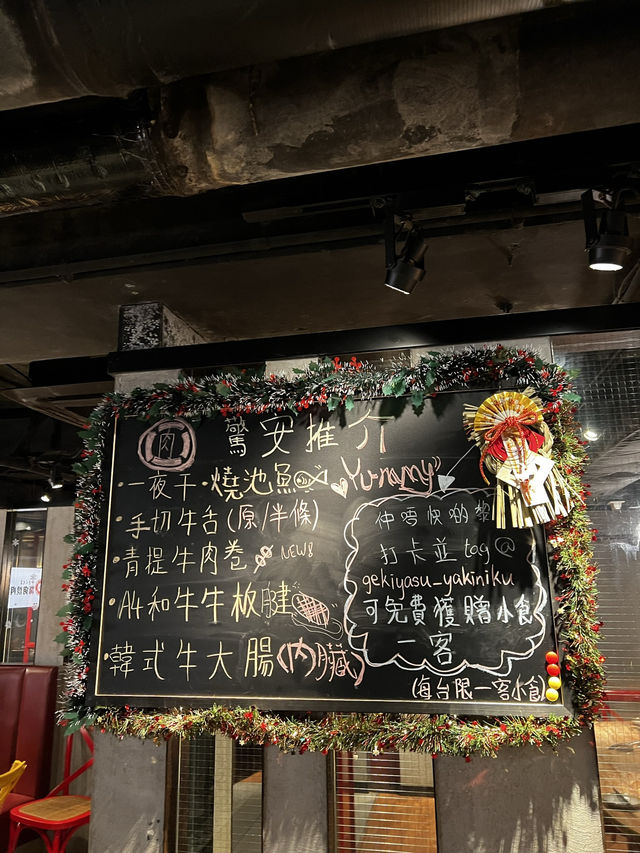 肉
驚安推介
・一夜干・燒池魚
Yummy
・手切牛舌(原/半條)
・青提牛肉卷 NEW8
・A4和牛牛板腱
・韓式牛大腸(內臟)
仲唔快啲
打卡並 tag@
gekiyasu_yakiniku
可免費獲贈小食
一客
(每台限一客小食)